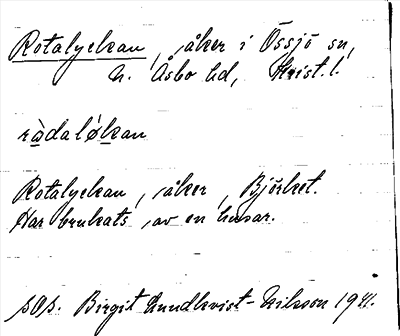 Rotalyckan, åker i Össjö sn,
N. Åsbo hd, Krist. l.
ràdaløkan
Rotalyckan, åker, Björket.
Har brukats av en husar.
sOs. Birgit Lundkvist-Nilsson 1941.